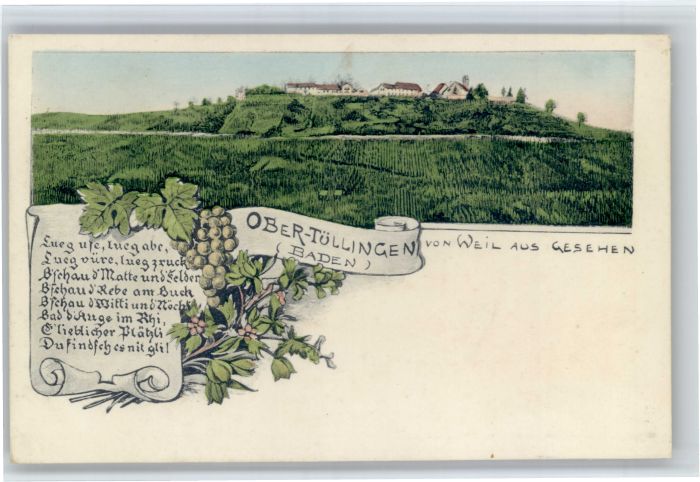 OBER-TÜLLINGEN
(BADEN)
VON WEIL AUS GESEHEN
Lueg use, lueg abe,
Lueg vüre, lueg zruck
Bschau d'Matte und Felder
Bschau d'Rebe am Buck
Bschau d'Witti und Nöchi
Bad d'Auge im Rhi,
E' lieblicher Plätzli
Du findsch es nit gli!